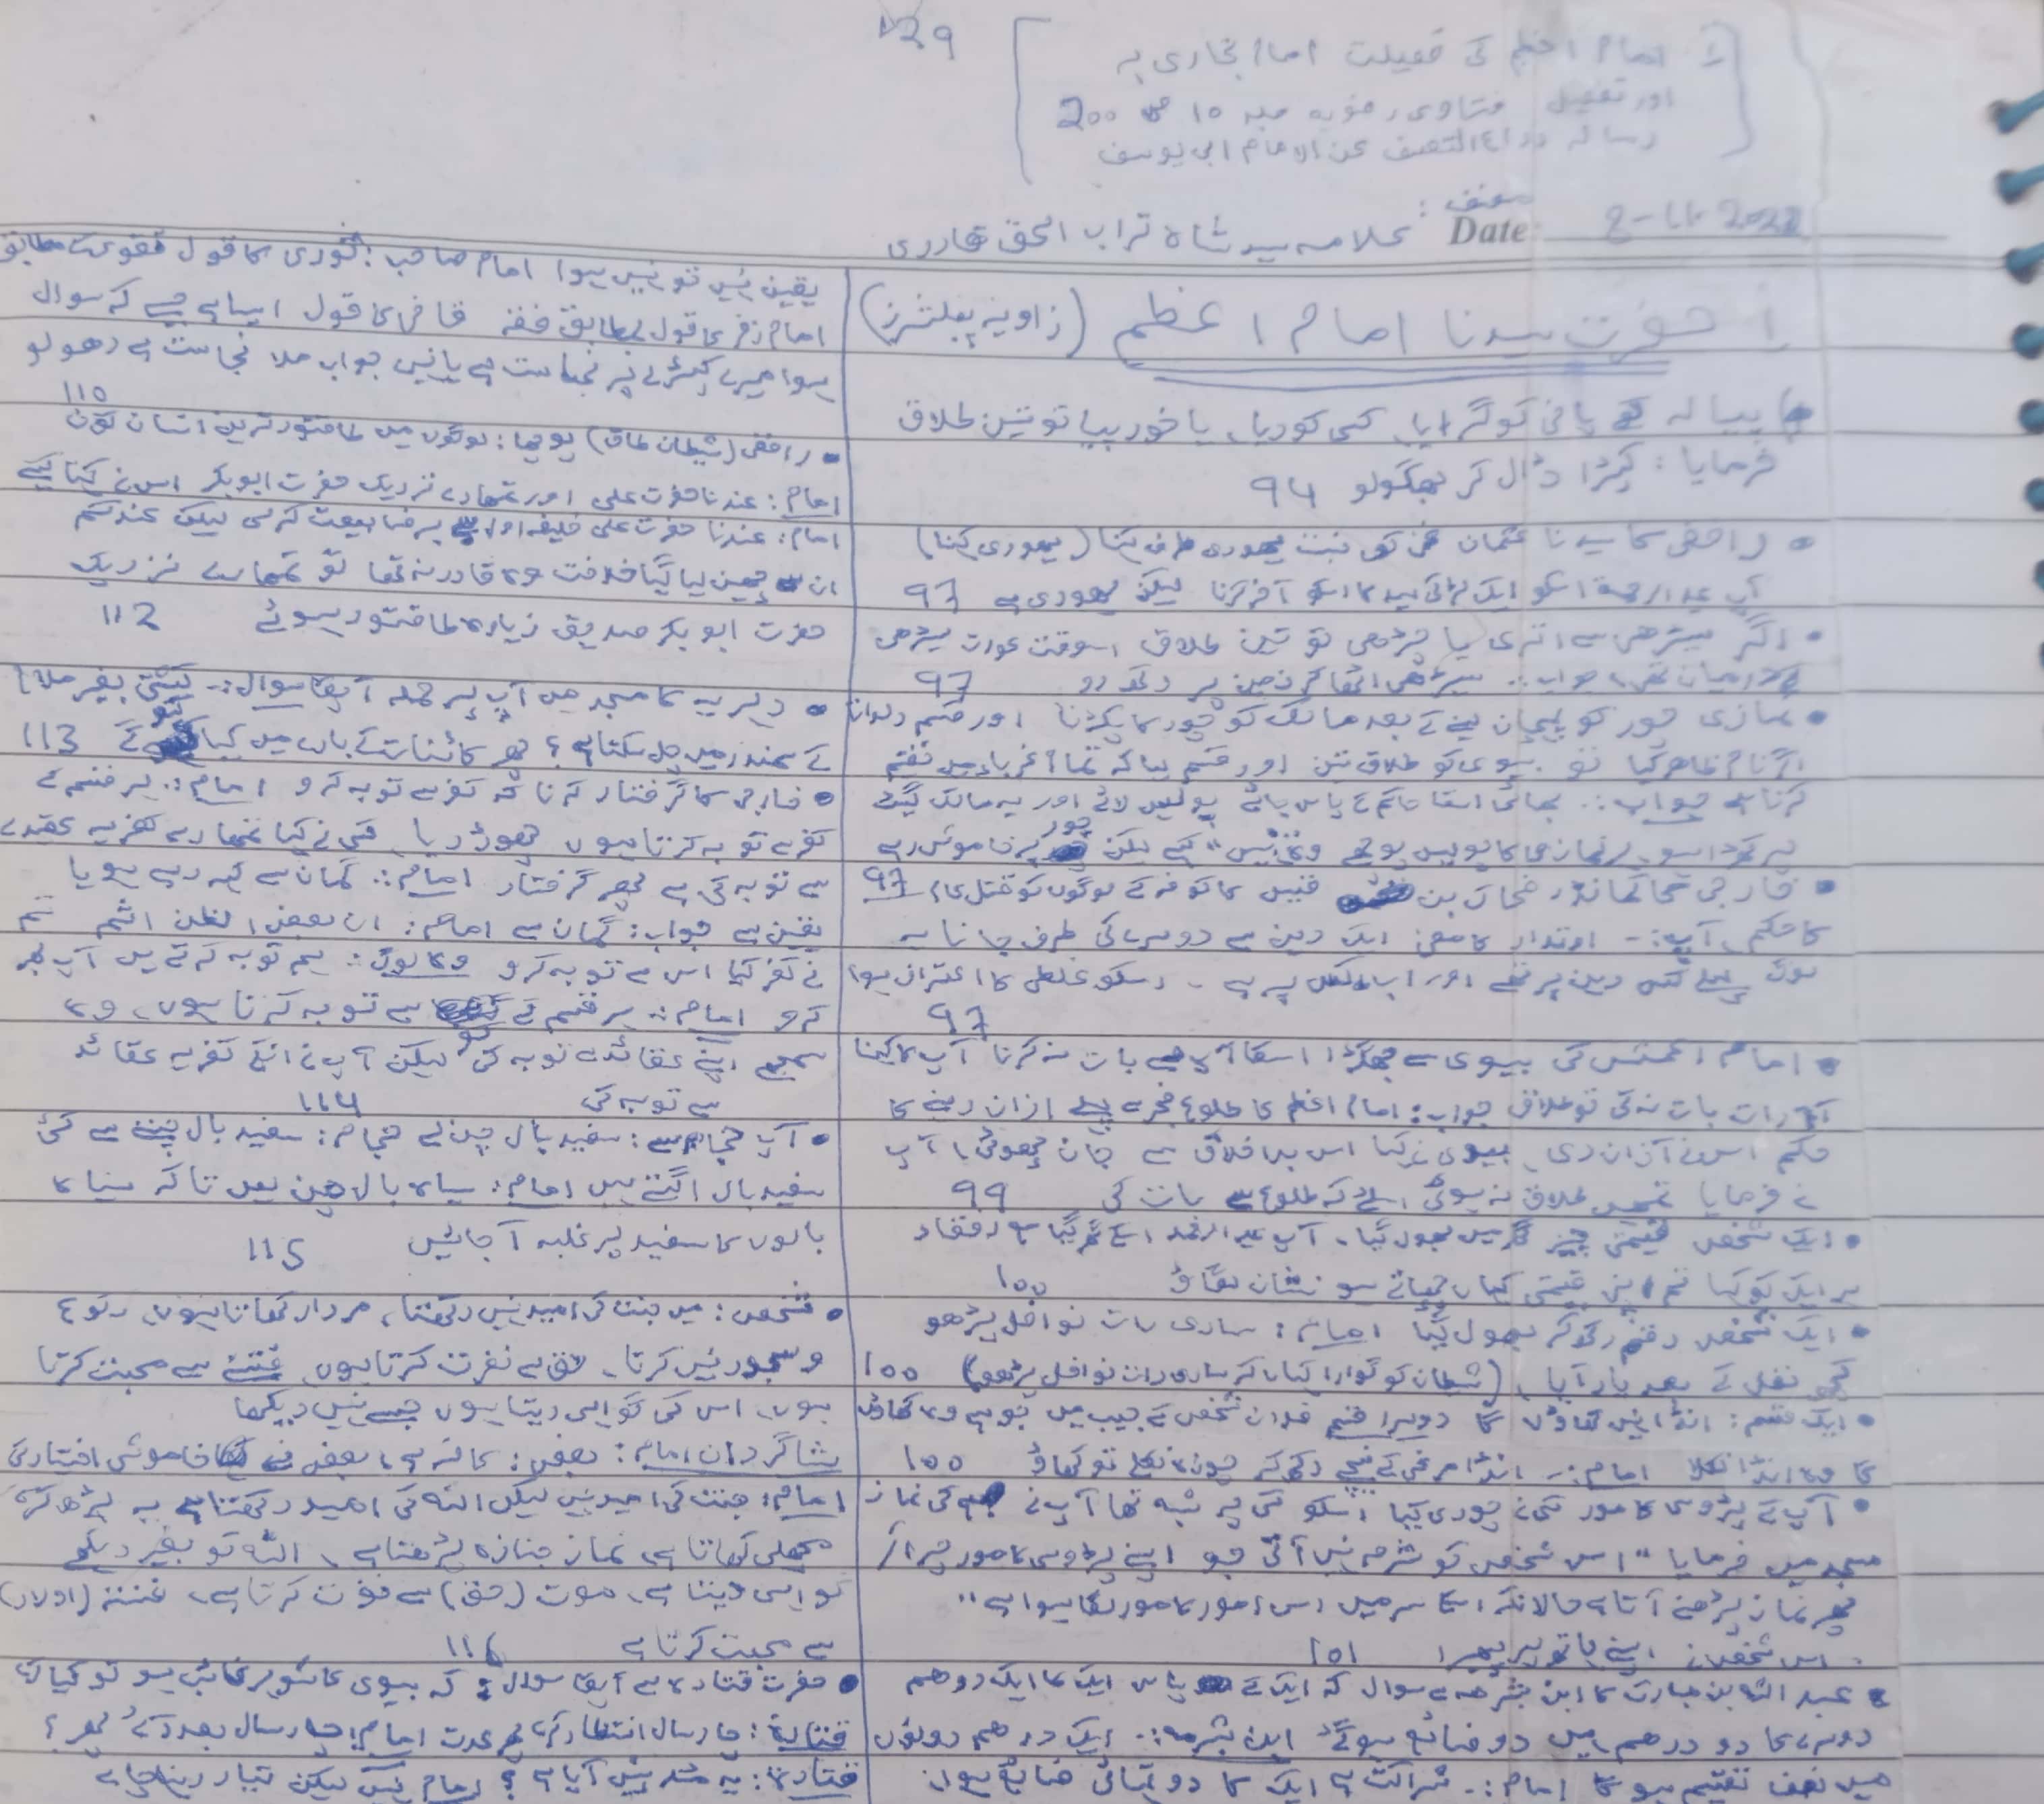 1229
امام اعظم کی فضیلت امام بخاری پہ
اور تفصیل فتاوی رضویہ جلد 10 ص 200
رسالہ عن الامام ابی یوسف
مصنف :
علامہ سید شاہ تراب الحق قادری
Date: 8-11-2022
حضرت سیدنا امام اعظم (زاویہ پبلشرز)
پیالہ کے پانی کو گرایا، کسی کو دیا، یا خود پیا تو تین طلاق
فرمایا : کپڑا ڈال کر بھگولو 94
رافضی کا سیدنا عثمان غنی کی نسبت یھودی طرف کرنا (یھودی کہنا)
لیکن یھودی ہے 97
اگر سیڑھی سے اتری یا چڑھی تو تین طلاق اسوقت عورت سیڑھی
کے درمیان تھی، جواب :. سیڑھی اٹھا کر زمین پر رکھ دو 97
نمازی چور کو پہچان لینے کے بعد مالک کو چور کا پکڑنا اور قسم دلوانا
اگر نام ظاہر کیا تو بیوی کو طلاق تین اور قسم لیا کہ تمام غرباء میں تقسیم
کرنا ہے جواب :. بھائی اسکا حاکم کے پاس جائے پولیس لائے اور یہ مالک گیٹ
پر کھڑا ہو، ہر نمازی کا پولیس پوچھے وہ "نہیں" کہے لیکن چور پر خاموش رہے 97
خارجی کا کمانڈر ضحاک بن قیس کا کوفہ کے لوگوں کو قتل عام
کا حکم، آپ :- ارتداد کا معنی ایک دین سے دوسرے کی طرف جانا یہ
لوگ پہلے کس دین پر تھے اور اب کس پر ہے - اسکو غلطی کا اعتراف ہوا
97
امام اعمش کی بیوی سے جھگڑا اسکا آپ سے بات نہ کرنا آپ کا کہنا
آج رات بات نہ کی تو طلاق جواب : امام اعظم کا طلوع فجر سے پہلے اذان دینے کا
حکم اس نے آذان دی، بیوی نے کہا اس بد اخلاق سے جان چھوٹی، آپ
نے فرمایا تمہیں طلاق نہ ہوئی اسلئے کہ طلوع سے بات کی 99
ایک شخص قیمتی چیز گھر میں بھول گیا - آپ علیہ الرحمہ اسکے گھر گیا مع رفقاء
ہر ایک کو کہا تم اپنی قیمتی کہاں چھپاتے ہو نشان لگاؤ 100
ایک شخص رقم رکھ کر بھول گیا امام : ساری رات نوافل پڑھو
کچھ نفل کے بعد یاد آیا، (شیطان کو گوارا کہاں کہ ساری رات نوافل پڑھو) 100
ایک قسم : انڈا نہیں کھاؤں گا دوسرا قسم فلاں شخص کے جیب میں جو ہے وہ کھاؤں
گا وہ انڈا نکلا امام :- انڈا مرغی کے نیچے رکھو کہ چوزہ نکلے تو کھاؤ 100
آپ کے پڑوسی کا مور کسی نے چوری کیا اسکو کسی پر شبہ تھا آپ نے کی نماز
مسجد میں فرمایا "اس شخص کو شرم نہیں آتی جو اپنے پڑوسی کا مور چرا کر
پھر نماز پڑھنے آتا ہے حالانکہ اسکا سر میں اس مور کا مور لگا ہوا ہے"
اس شخص نے اپنے ہاتھ سر پہ پھیرا 101
عبد اللہ بن مبارک کا ابن شبرمہ سے سوال کہ ایک کے پاس ایک کا ایک درھم
دوسرے کا دو درھم، ہیں دو ضائع ہو گئے ابن شبرمہ :. ایک درھم دونوں
میں نصف تقسیم ہو گا امام :. شراکت ہے ایک کا دو تہائی ضائع ہوں
یقین نہیں تو نہیں ہوا امام صاحب : ثوری کا قول تقوی کے مطابق
امام زفر کا قول بمطابق فقہ قاضی کا قول ایسا ہے جیسے کہ سوال
ہوا میرے کپڑے پر نجاست ہے یا نہیں جواب ملا نجاست ہے دھو لو
110
رافضی (شیطان طاق) پوچھا : لوگوں میں طاقتور ترین انسان کون
امام : عندنا حضرت علی اور تمھارے نزدیک حضرت ابوبکر اس نے کہا کیسے
امام : عندنا حضرت علی خلیفہ اول سے برضا بیعت کر لی لیکن عندکم
ان سے چھین لیا گیا خلافت وہ قادر نہ تھا تو تمھارے نزدیک
حضرت ابوبکر صدیق زیادہ طاقتور ہوئے 112
دہریہ کا مسجد میں آپ پر حملہ آپکا سوال :- کشتی بغیر ملاح
کے سمندر میں چل سکتا ہے؟ پھر کائنات کے بارے میں کیا کہو گے 113
خارجی کا گرفتار کرنا کہ کفر سے توبہ کرو امام :. ہر قسم کے
کفر سے توبہ کرتا ہوں چھوڑ دیا، کسی نے کہا تمھارے کفریہ عقیدے
سے توبہ کی ہے پھر گرفتار امام :. گمان سے کہہ رہے ہو یا
یقین سے جواب : گمان سے امام : ان بعض الظن اثم تم
نے کفر کیا اس سے توبہ کرو وہ لوگ : ہم توبہ کرتے ہیں آپ بھی
کرو امام :. ہر قسم کے کفر سے توبہ کرتا ہوں، وہ
سمجھے اپنے عقائد سے توبہ کی لیکن آپ نے انکے کفریہ عقائد
سے توبہ کی 114
آپ حجام سے : سفید بال چن لے حجام : سفید بال چننے سے کئی
سفید بال اگتے ہیں امام : سیاہ بال چن لیں تاکہ سیاہ
بالوں کا سفید پر غلبہ آ جائیں 115
شخص : میں جنت کی امید نہیں رکھتا، مردار کھاتا ہوں، رکوع
و سجود نہیں کرتا، حق سے نفرت کرتا ہوں، فتنے سے محبت کرتا
ہوں، اس کی گواہی دیتا ہوں جسے نہیں دیکھا
شاگردان امام : بعض : کافر ہے، بعض نے خاموشی اختیار کی
امام : جنت کی امید نہیں لیکن اللہ کی امید رکھتا ہے
مچھلی کھاتا ہے، نماز جنازہ پڑھتا ہے، اللہ کو بغیر دیکھے
گواہی دیتا ہے، موت (حق) سے نفرت کرتا ہے، فتنہ (اولاد)
سے محبت کرتا ہے 116
حضرت قتادہ سے آپکا سوال : کہ بیوی کا شوہر غائب ہو تو کیا کرے
قتادہ : چار سال انتظار کرے پھر عدت امام : چار سال بعد آئے پھر؟
قتادہ : یہ مسئلہ پیش آیا ہے؟ امام نہیں لیکن تیار رہنا چاہے